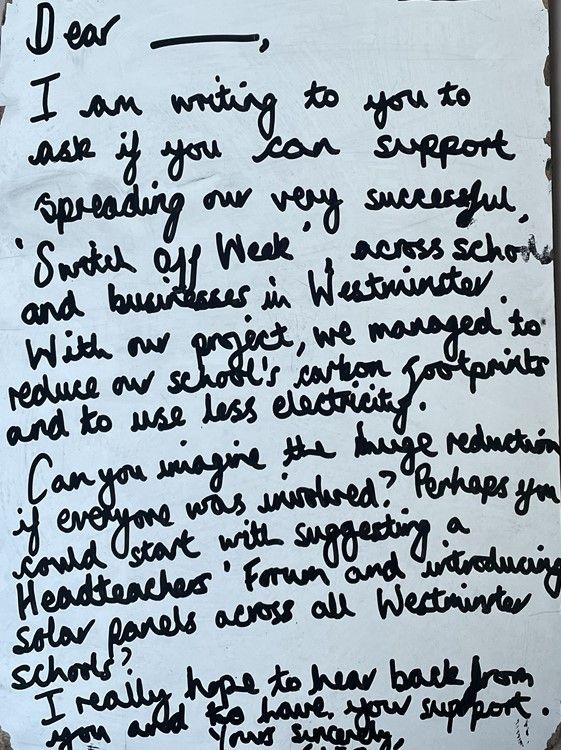 Dear ———,
I am writing to you to
ask if you can support
spreading our very successful,
'Switch Off Week', across schools
and businesses in Westminster.
With our project, we managed to
reduce our school's carbon footprints
and to use less electricity.
Can you imagine the huge reduction
if everyone was involved? Perhaps you
could start with suggesting a
Headteachers' Forum and introducing
solar panels across all Westminster
schools?
I really hope to hear back from
you and to have your support.
Yours sincerely,